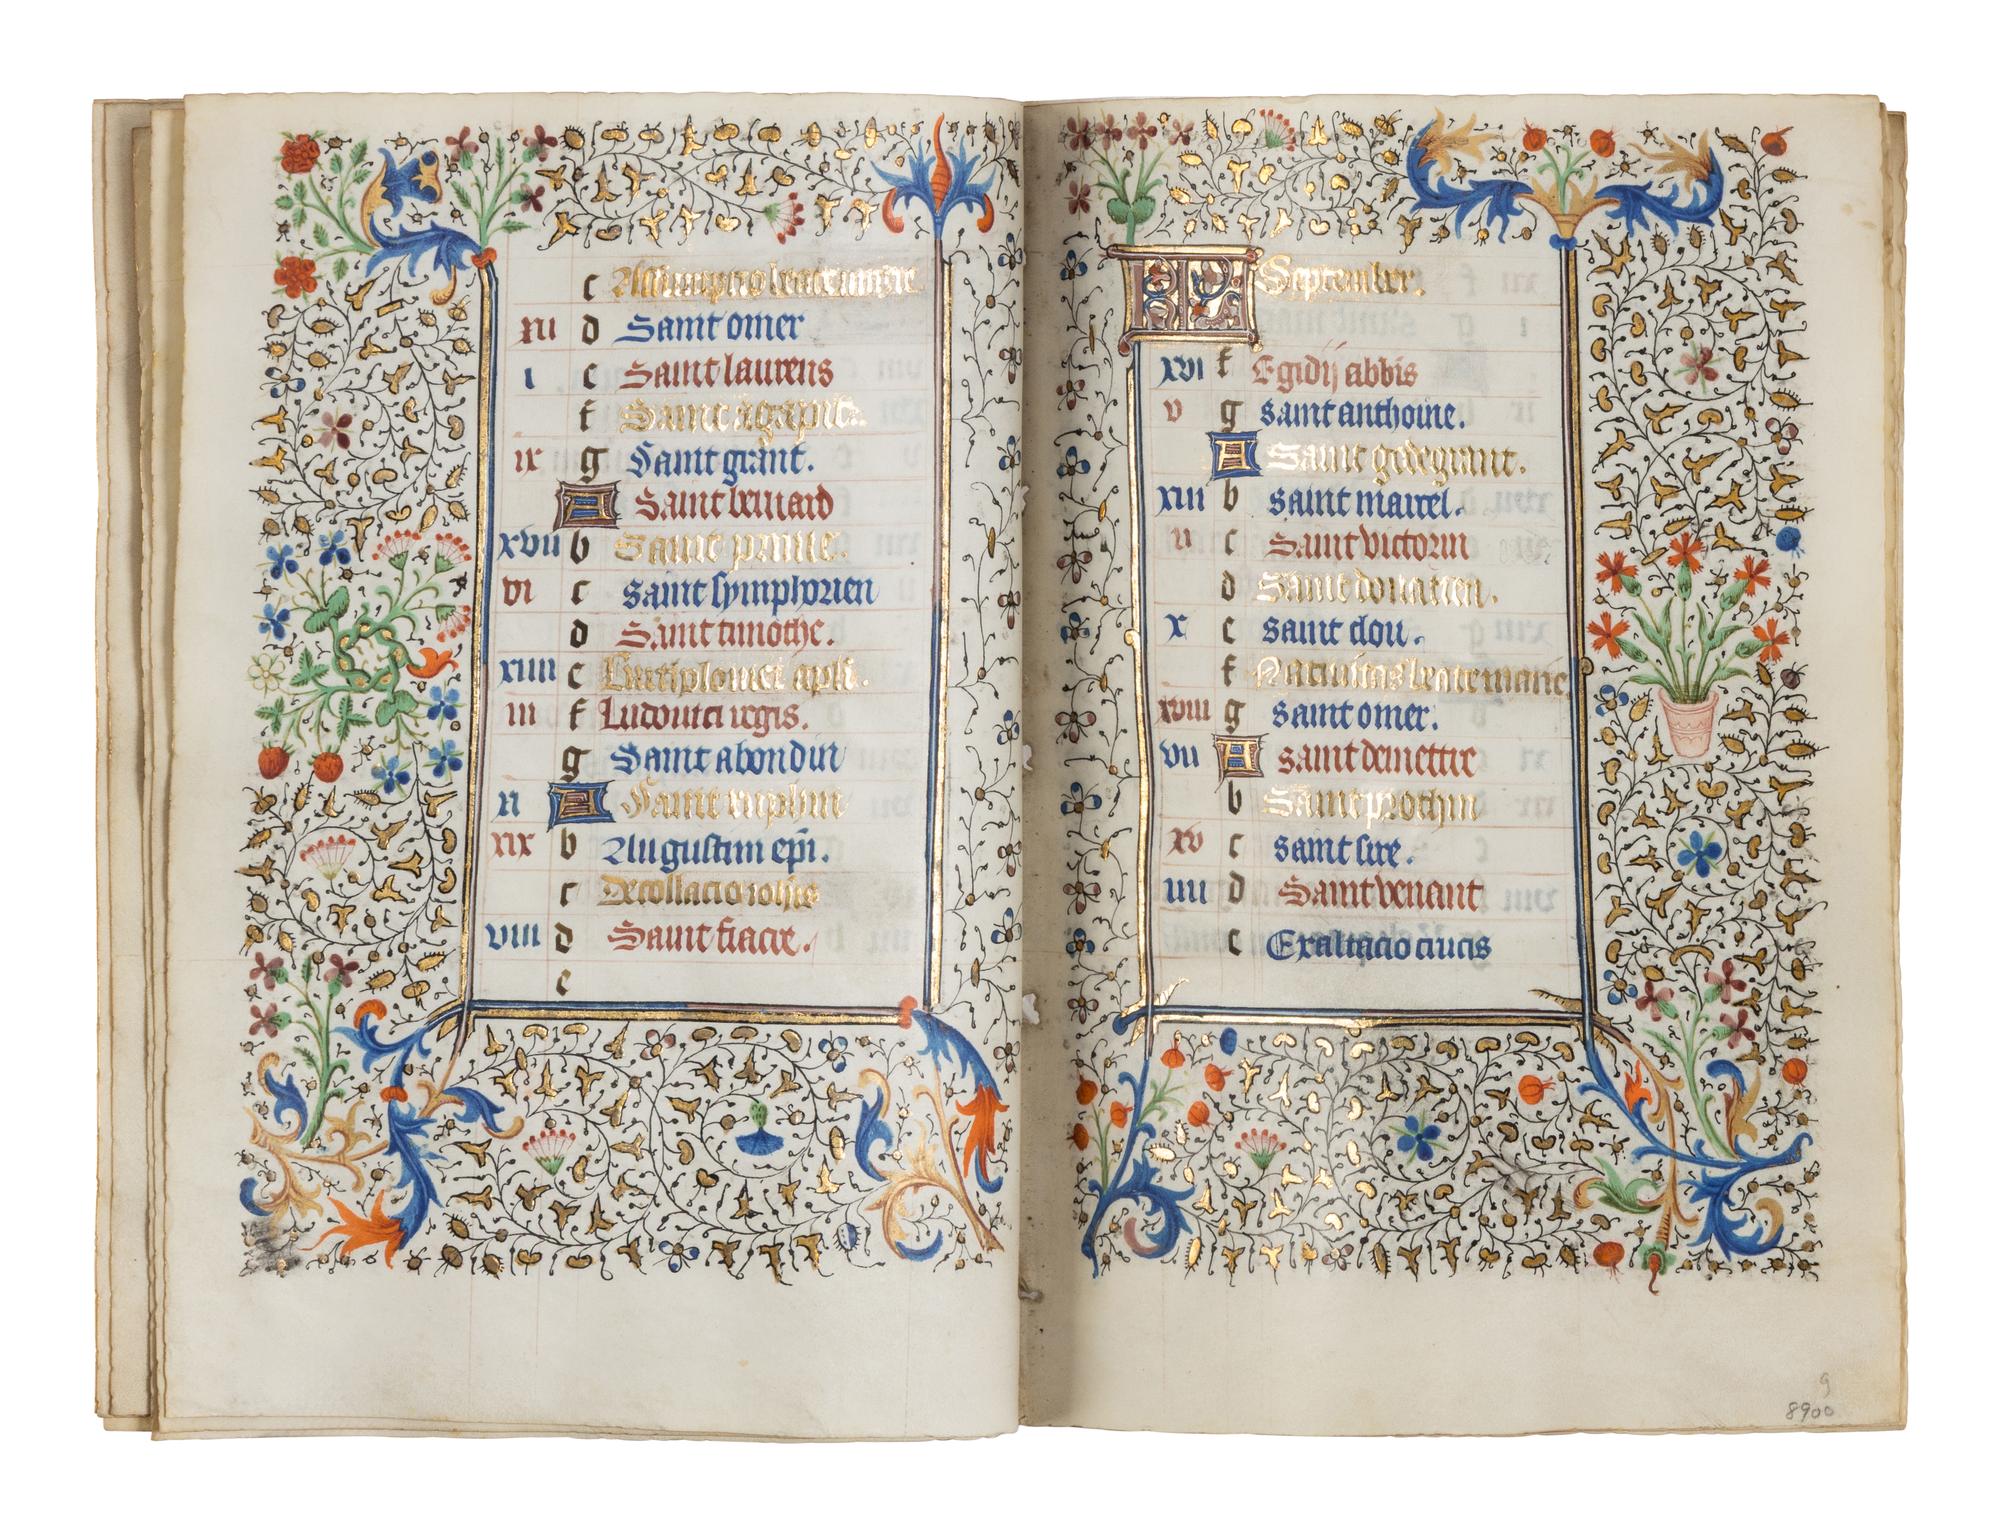 c Assumptio beate marie.
xii d Saint omer
i e Saint laurens
f Saint agapit.
ix g Saint grant.
A Saint bernard
xvii b Saint prime.
vi c saint symphorien
d Saint timothe.
xiiii e Bartholomei apli.
iii f Ludovici regis.
g Saint abondin
xi A Saint ruphin
xix b Augustini epi.
c Decollacio iohis
viii d Saint fiacre.
e
KL September.
xvi f Egidij abbis
v g saint anthoine.
A Saint godegrant.
xiii b saint marcel.
ii c Saint victorin
d Saint donatien.
x e saint clou.
f Nativitas beate marie
xviii g saint omer.
vii A saint demettre
b Saint prothin
xv c saint sire.
iiii d Saint venant
e Exaltacio crucis
9
8900